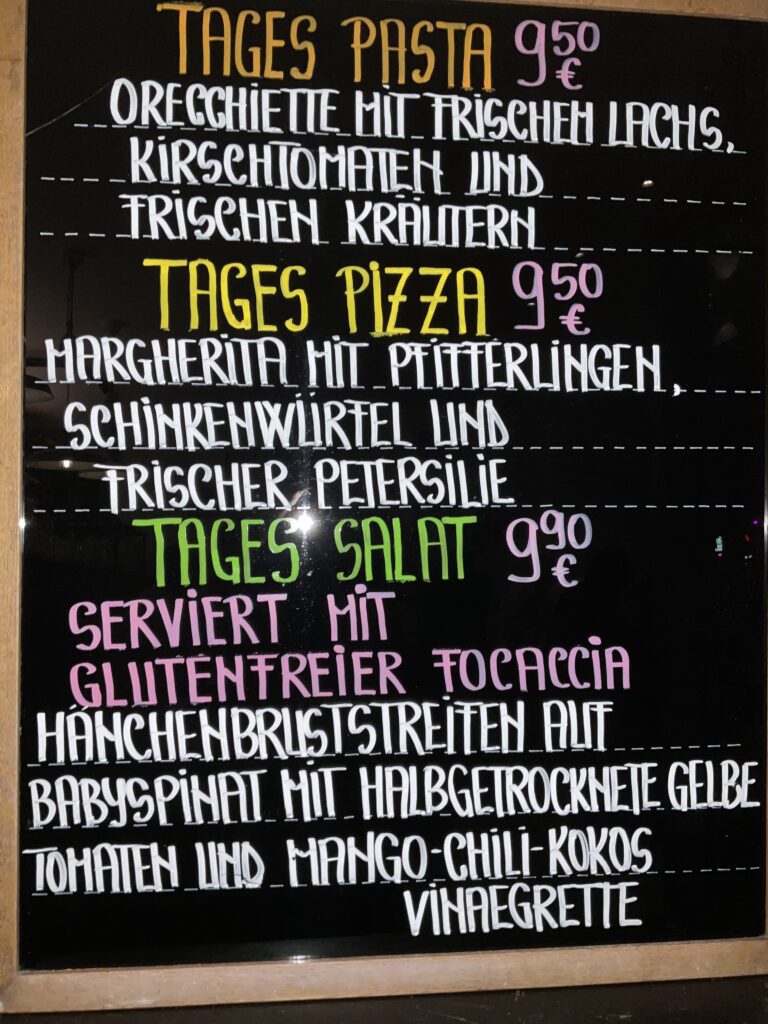 TAGES PASTA 9,50 €
ORECCHIETTE MIT FRISCHEM LACHS,
KIRSCHTOMATEN UND
FRISCHEN KRÄUTERN
TAGES PIZZA 9,50 €
MARGHERITA MIT PFIFFERLINGEN,
SCHINKENWÜRFEL UND
FRISCHER PETERSILIE
TAGES SALAT 9,90 €
SERVIERT MIT
GLUTENFREIER FOCACCIA
HÄNCHENBRUSTSTREIFEN AUF
BABYSPINAT MIT HALBGETROCKNETE GELBE
TOMATEN UND MANGO-CHILI-KOKOS
VINAEGRETTE